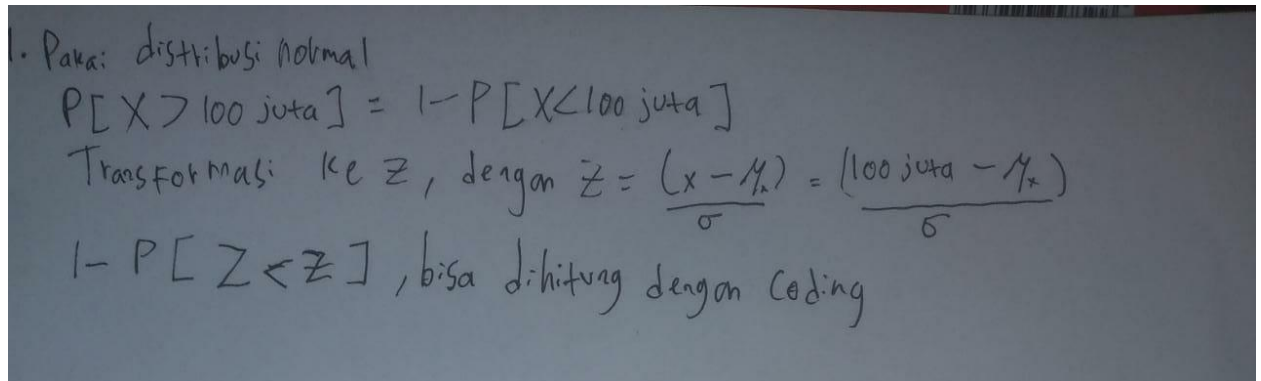 1. Pakai distribusi normal
P[X > 100 juta] = 1-P[X<100 juta]
Transformasi ke z, dengan z = (x-μₓ)/σ = (100 juta - μₓ)/σ
1-P[Z<z], bisa dihitung dengan coding